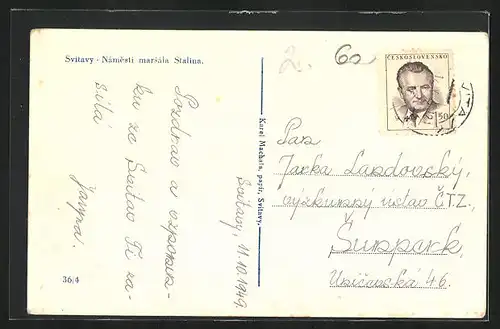 Svitavy - Náměstí maršála Stalina.
2.
60
ČESKOSLOVENSKO
1 50
Svitavy, 11.10.1949.
Pozdrav a vzpomín-
ku ze Svitav Ti za-
sílá
Karel Machala, papír, Svitavy.
Pan
Jarka
výzkumný ústav ČTZ,
Šumperk,
46.
36/4